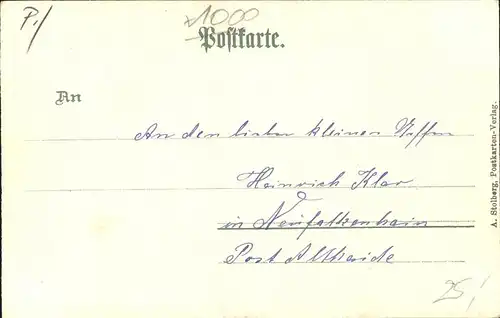 P./
1000
Postkarte.
An
An den lieben kleinen Neffen
Heinrich Klar
in Neufalkenhain
Post Altheide
A. Stolberg, Postkarten-Verlag.
25,/